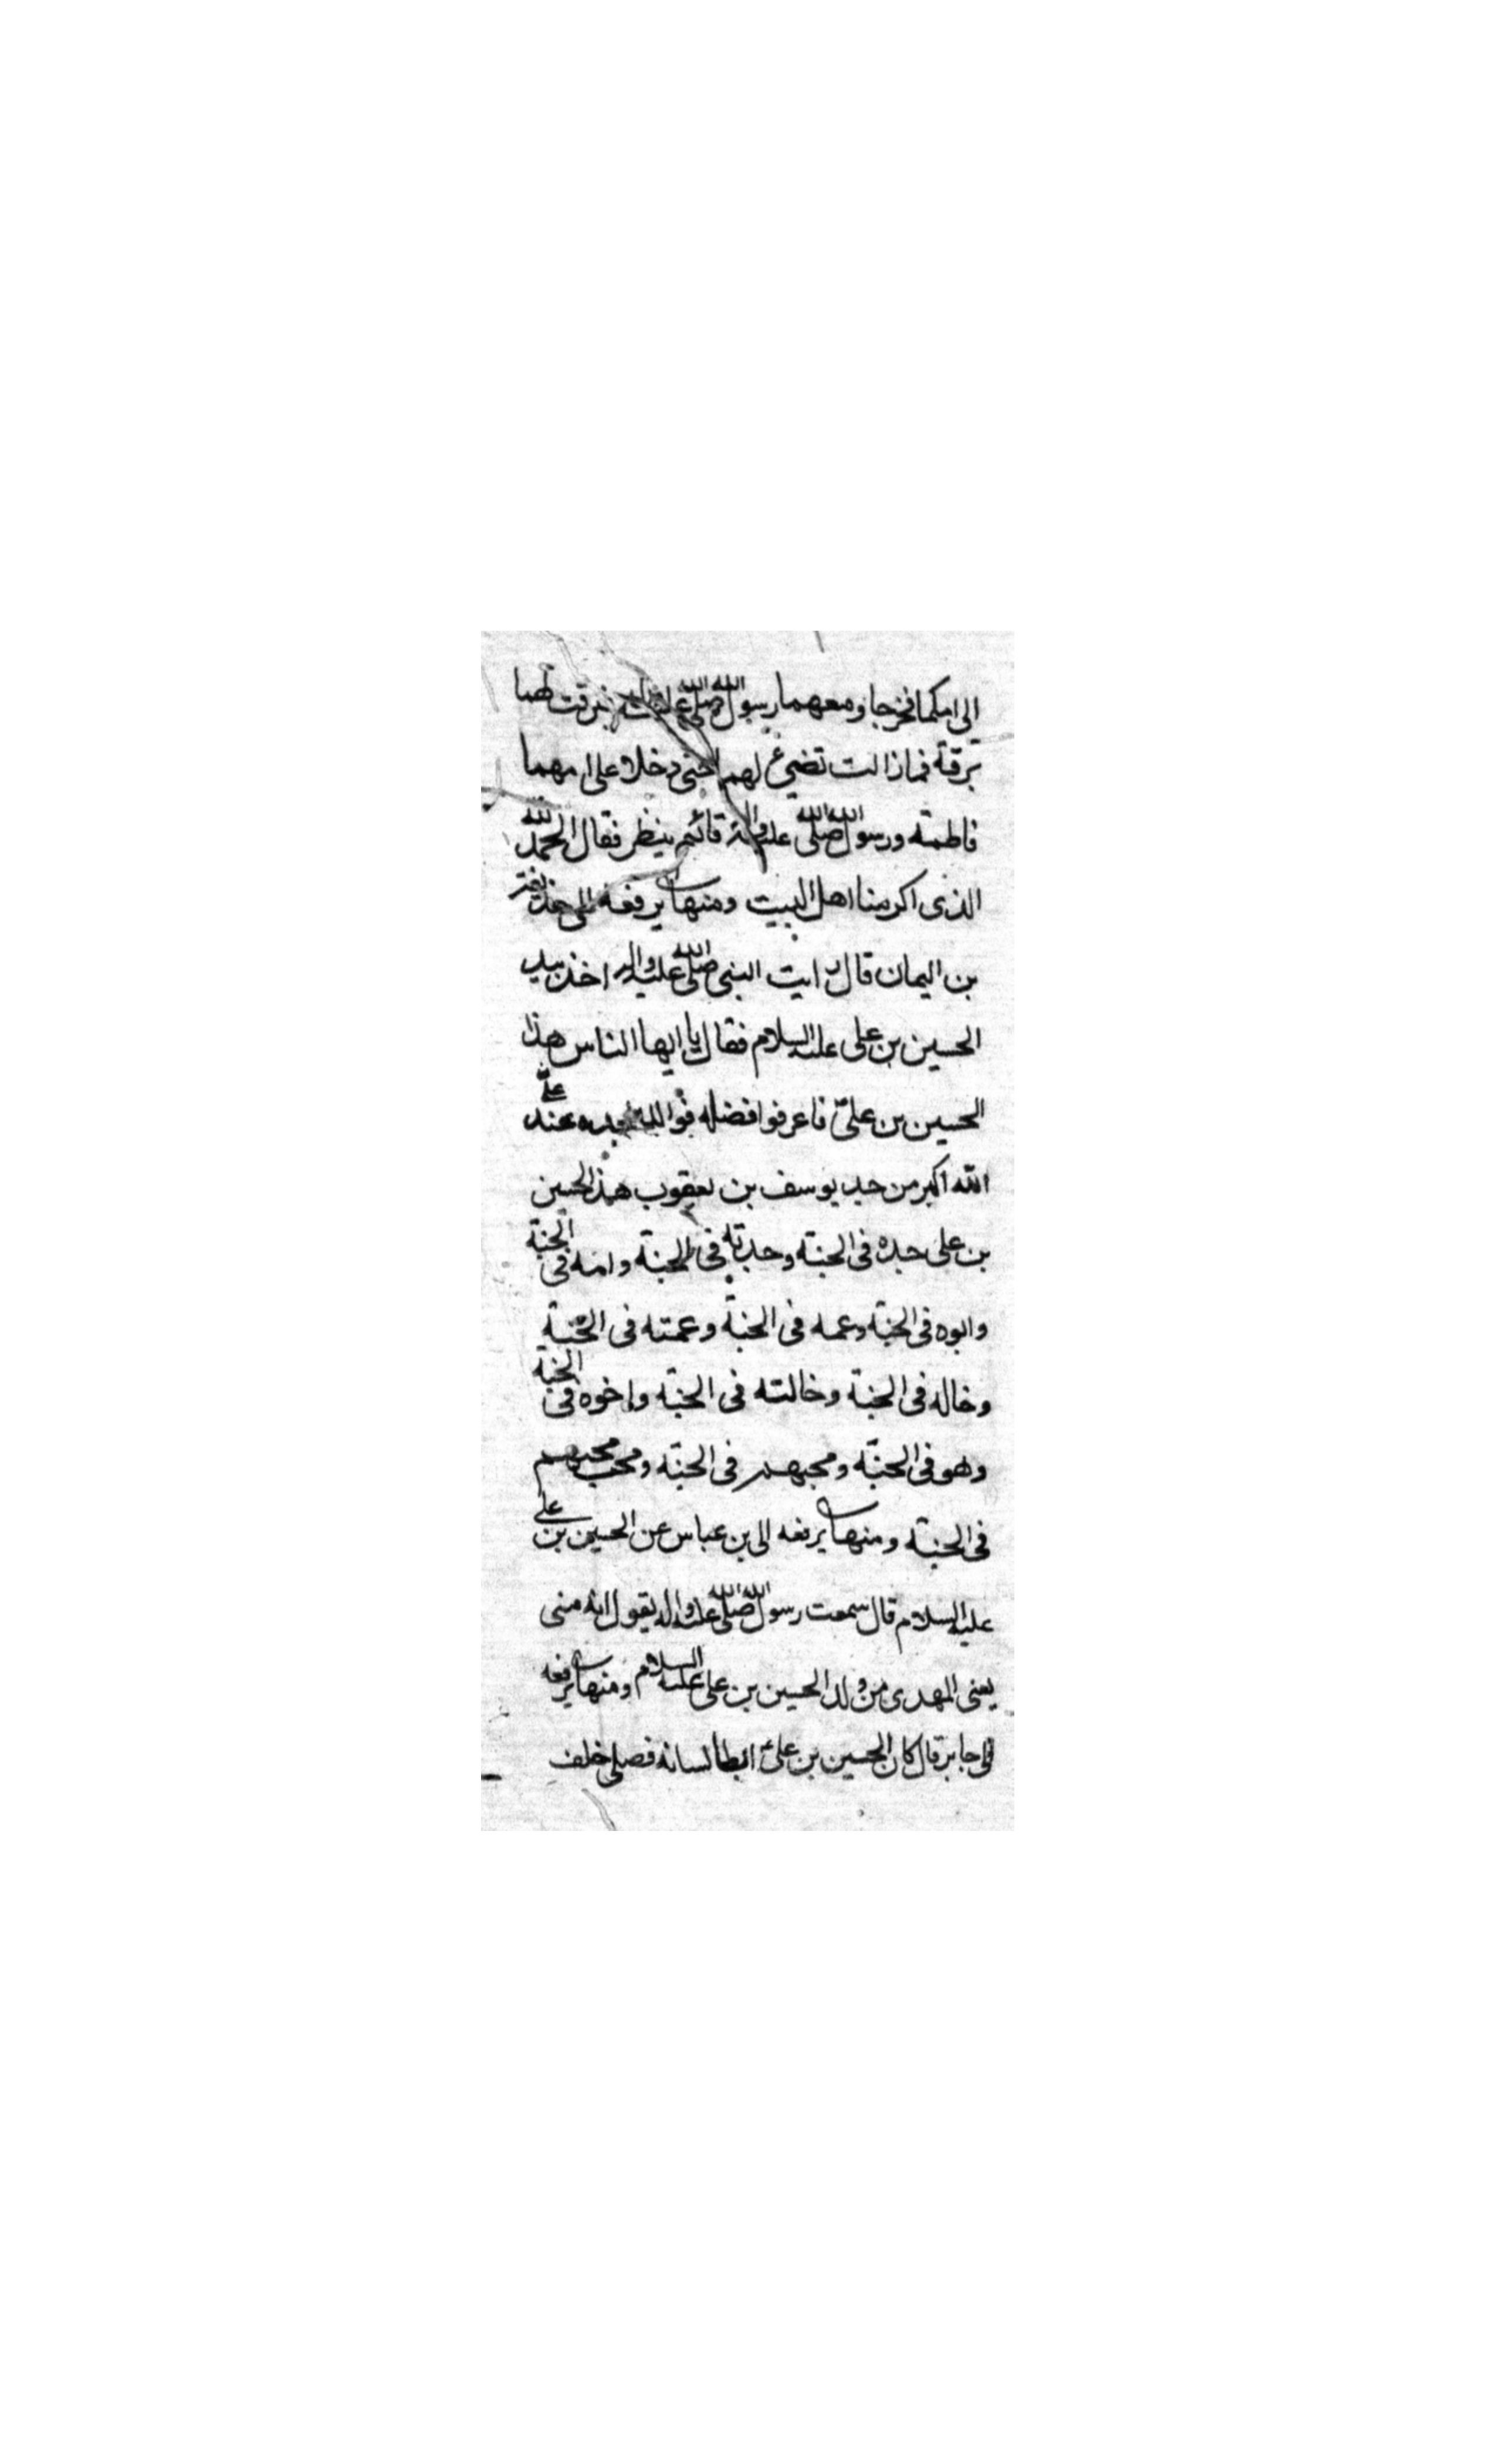 الى امكما فخرجا ومعهما رسول الله صلى الله عليه واله فبرقت لهما
برقة فما زالت تضيئ لهما حتى دخلا على امهما
فاطمة ورسول الله صلى الله عليه واله قائم ينظر فقال الحمد لله
الذى اكرمنا اهل البيت ومنها يرفعه الى حذيفة
بن اليمان قال رايت النبى صلى الله عليه واله اخذ بيد
الحسين بن على عليه السلام فقال يا ايها الناس هذا
الحسين بن علىّ فاعرفوا فضله فوالله لجده عند
الله اكبر من جد يوسف بن يعقوب هذا الحسين
بن على جده فى الجنة وجدته فى الجنة وامه فى الجنة
وابوه فى الجنة وعمه فى الجنة وعمته فى الجنة
وخاله فى الجنة وخالته فى الجنة واخوه فى الجنة
وهو فى الجنة ومحبهم فى الجنة ومحب محبهم
فى الجنة ومنها يرفعه الى بن عباس عن الحسين بن على
عليه السلام قال سمعت رسول الله صلى الله عليه واله يقول انه منى
يعنى المهدى من ولد الحسين بن على عليه السلام ومنها يرفعه
الى جابر قال كان الحسين بن على ابطا لسانه فصلى خلف